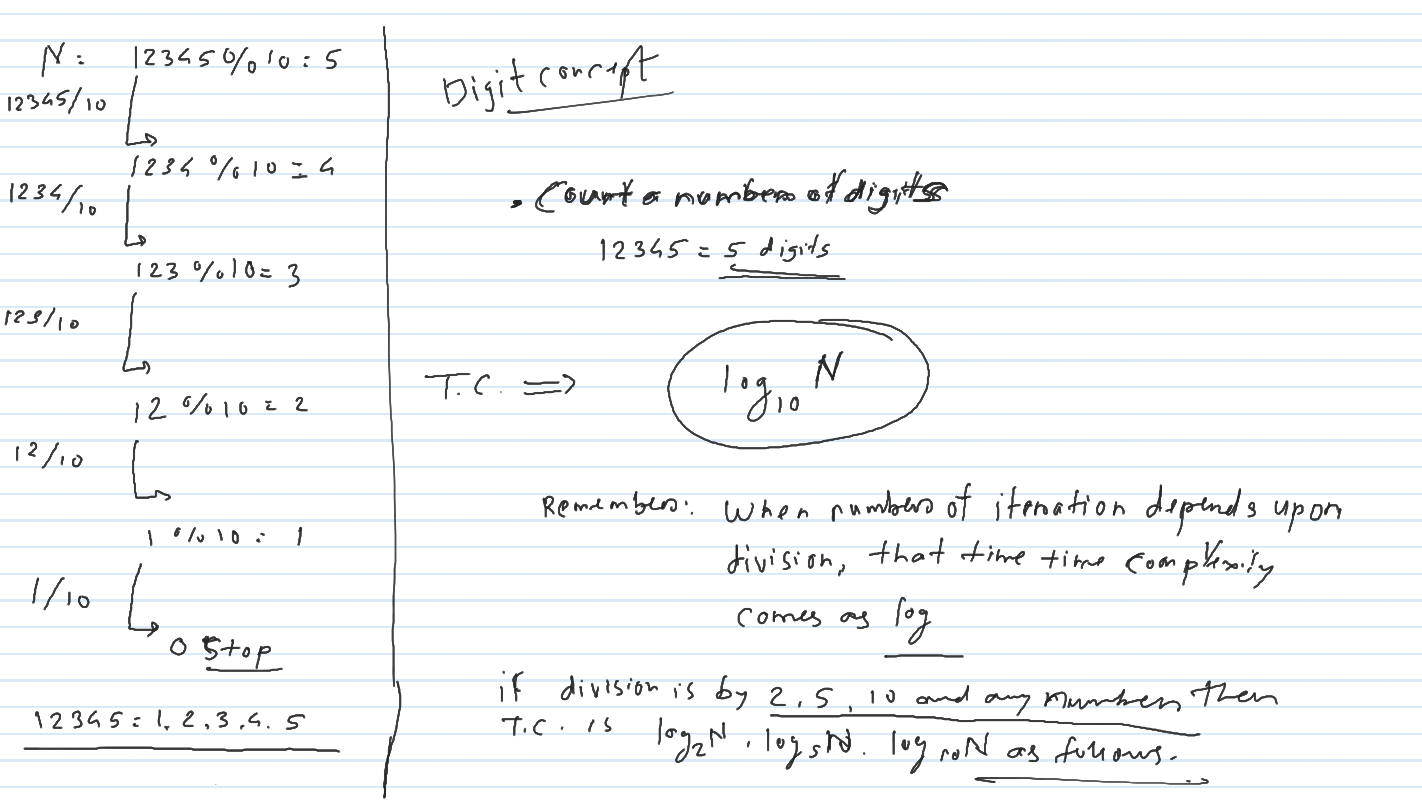 N: 12345 % 10 = 5
12345/10
1234 % 10 = 4
1234/10
123 % 10 = 3
123/10
12 % 10 = 2
12/10
1 % 10 = 1
1/10
0 Stop
12345 = 1, 2, 3, 4, 5
Digit concept
. Count a numbers of digits
12345 = 5 digits
T.C. ⇒ log₁₀ N
Remember: When numbers of iteration depends upon
division, that time time complexity
comes as log
if division is by 2, 5, 10 and any number, then
T.C. is log₂N, log₅N. log₁₀N as follows.